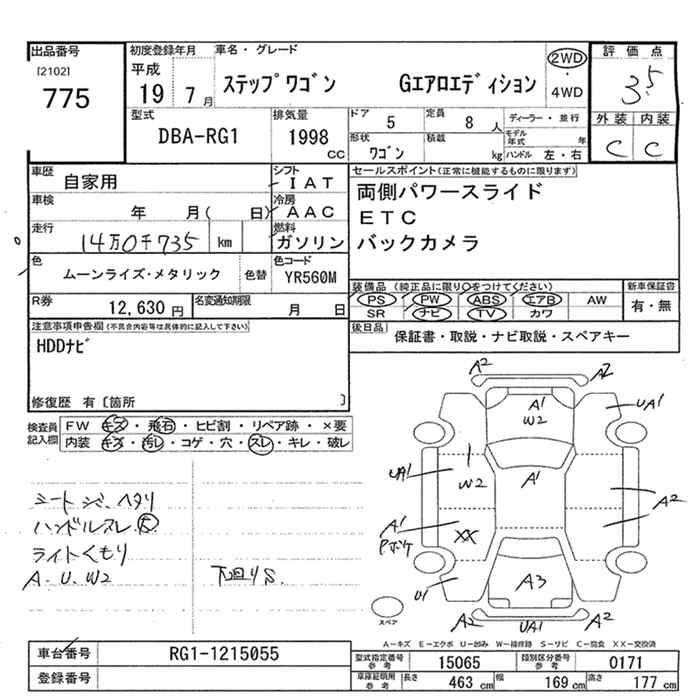 出品番号
[2102]
775
初度登録年月
平成
19 7月
車名・グレード
ステップワゴン Gエアロエディション
2WD
・
4WD
評価点
3.5
外装 内装
C C
型式
DBA-RG1
排気量
1998
cc
ドア
5
定員
8人
ディーラー・並行
形状
ワゴン
積載
kg
モデル年式 年
ハンドル 左・右
車歴
自家用
シフト
IAT
車検
年 月( 日)
冷房
AAC
走行
14万0千735 km
燃料
ガソリン
色
ムーンライズ・メタリック
色替
色コード
YR560M
R券
12,630円
名変通知期限
月 日
セールスポイント(正常に機能するものに限ります)
両側パワースライド
ETC
バックカメラ
装備品 (純正品に限り○をつけてください)
PS PW ABS エアB AW
SR ナビ TV カワ
新車保証書
有・無
後日品
保証書・取説・ナビ取説・スペアキー
注意事項申告欄(不具合内容等は具体的に記入して下さい)
HDDナビ
修復歴 有〔箇所 〕
検査員
記入欄
FW キズ・飛石・ヒビ割・リペア跡・×要
内装 キズ・汚レ・コゲ・穴・スレ・キレ・破レ
シートシミ、ヘタリ
ハンドルスレ
ライトくもり
A.U.W2
下回りS.
A2 A2
A1
W2
UA1
UA1
W2
A1
A2
A1
XX
A3
U1
A2 UA1 A2
スペア
A-キズ E-エクボ U-凹み W-補修跡 S-サビ C-腐食 XX-交換済
車台番号
RG1-1215055
登録番号
型式指定番号
参考
15065
類別区分番号
参考
0171
車庫証明用
参考
長さ
463 cm
幅
169 cm
高さ
177 cm